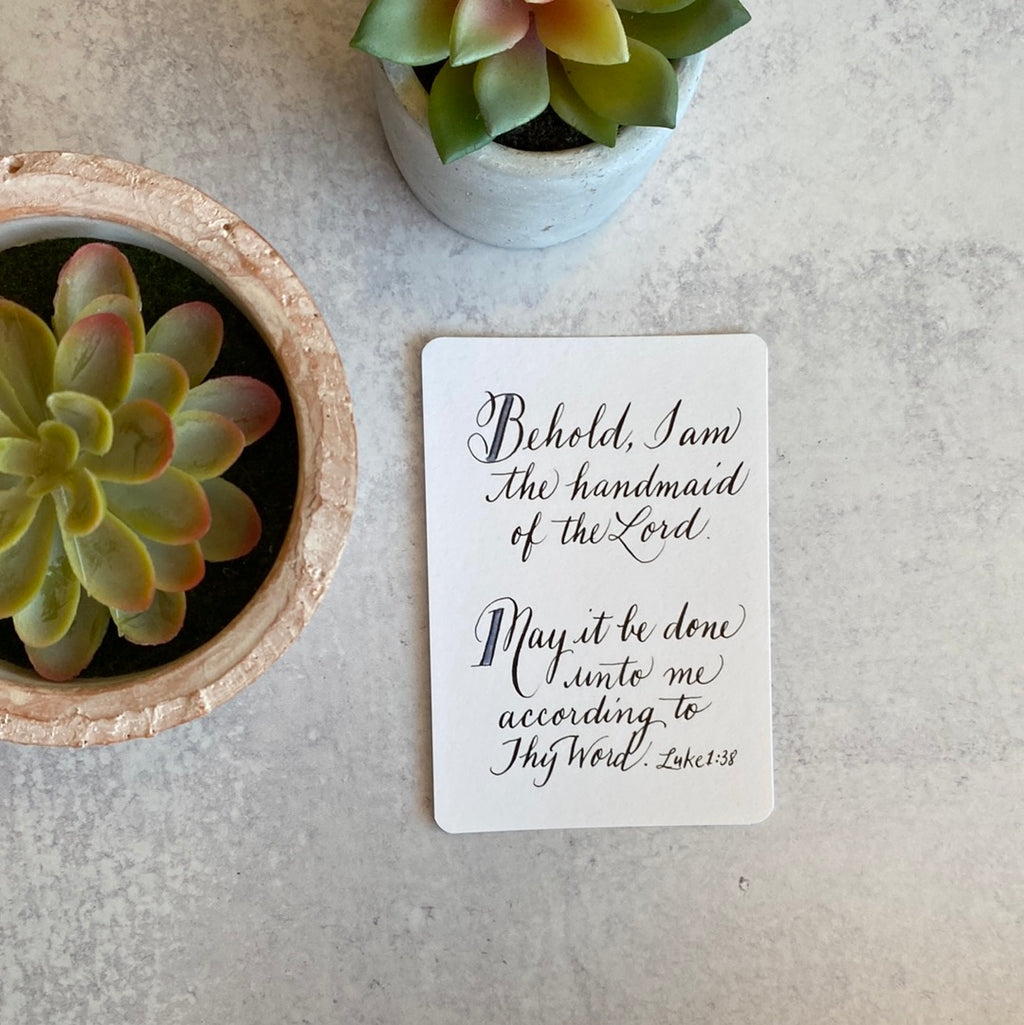 Behold, I am
the handmaid
of the Lord.
May it be done
unto me
according to
Thy Word. Luke 1:38